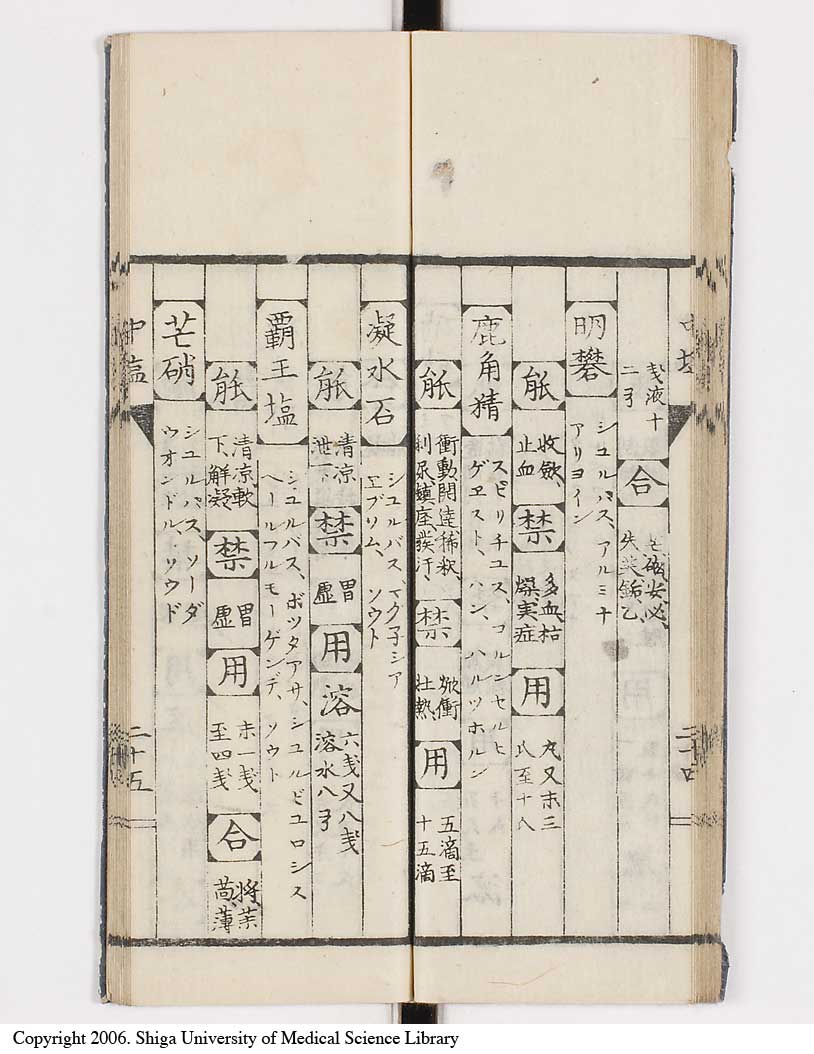 戔液十
二弓
合
芒硝安必
失葉鉐乙
明礬
シユルパス、アルミナ
アリヨイン
能
收斂
止血
禁
多血枯
燥実症
用
丸又末三
氏至十八
鹿角精
スピリチユス、コルンセルヒ
ゲヱスト、ハン、ハルツホルン
能
衝動開達稀釈
利尿鎮痙發汗
禁
焮衝
壮熱
用
五滴至
十五滴
凝水石
シユルバス、マグ子シア
ヱブソム、ソウト
能
清涼
泄下
禁
胃
虚
用
溶
六戔又八戔
溶水八弓
覇王塩
シユルバス、ボツタアサ、シユルピユロシス
ヘールフルモーゲンデ、ソウト
能
清涼軟
下解凝
禁
胃
虚
用
末一戔
至四戔
合
将葉
茴薄
芒硝
シユルパス、ソーダ
ウオンドル、ソウド
中塩
二十五
二十四
Copyright 2006. Shiga University of Medical Science Library